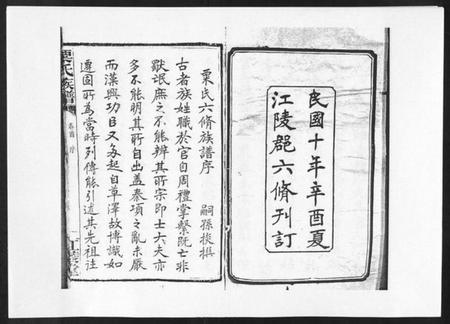 民國十年辛酉夏
江陵郡六脩刊訂
粟氏六脩族譜序
嗣孫 撰
古者族姓職於官自周禮掌繫既亡非
獸氓庶之不能辨其所宗即士大夫亦
多不能明其所自出蓋秦項之亂未厥
而漢興功臣又多起自草澤故博識如
遷固所為當時列傳能引述其先祖往
氏族譜
卷首 序